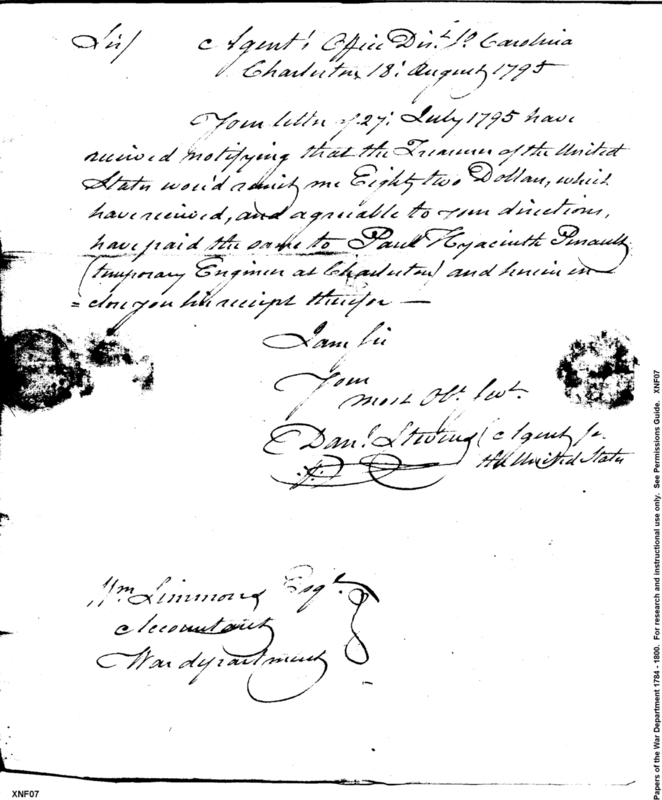 Sir/ Agent's Office Dist. So. Carolina
Charleston 18: August 1795
Your letter of 27: July 1795 have
received notifying that the Treasurer of the United
States wou'd remit me Eighty two Dollars, which
have received, and agreeable to your directions,
have paid the same to Paul Hyacinth Perrault
(temporary Engineer at Charleston) and herein in
= close you his receipt therefor —
I am Sir
Your
most Obt. Servt.
Danl. Stevens Agent for
the United States
Wm Simmons Esqr.
Accountant
War department
XNF07
Papers of the War Department 1784 - 1800. For research and instructional use only. See Permissions Guide. XNF07